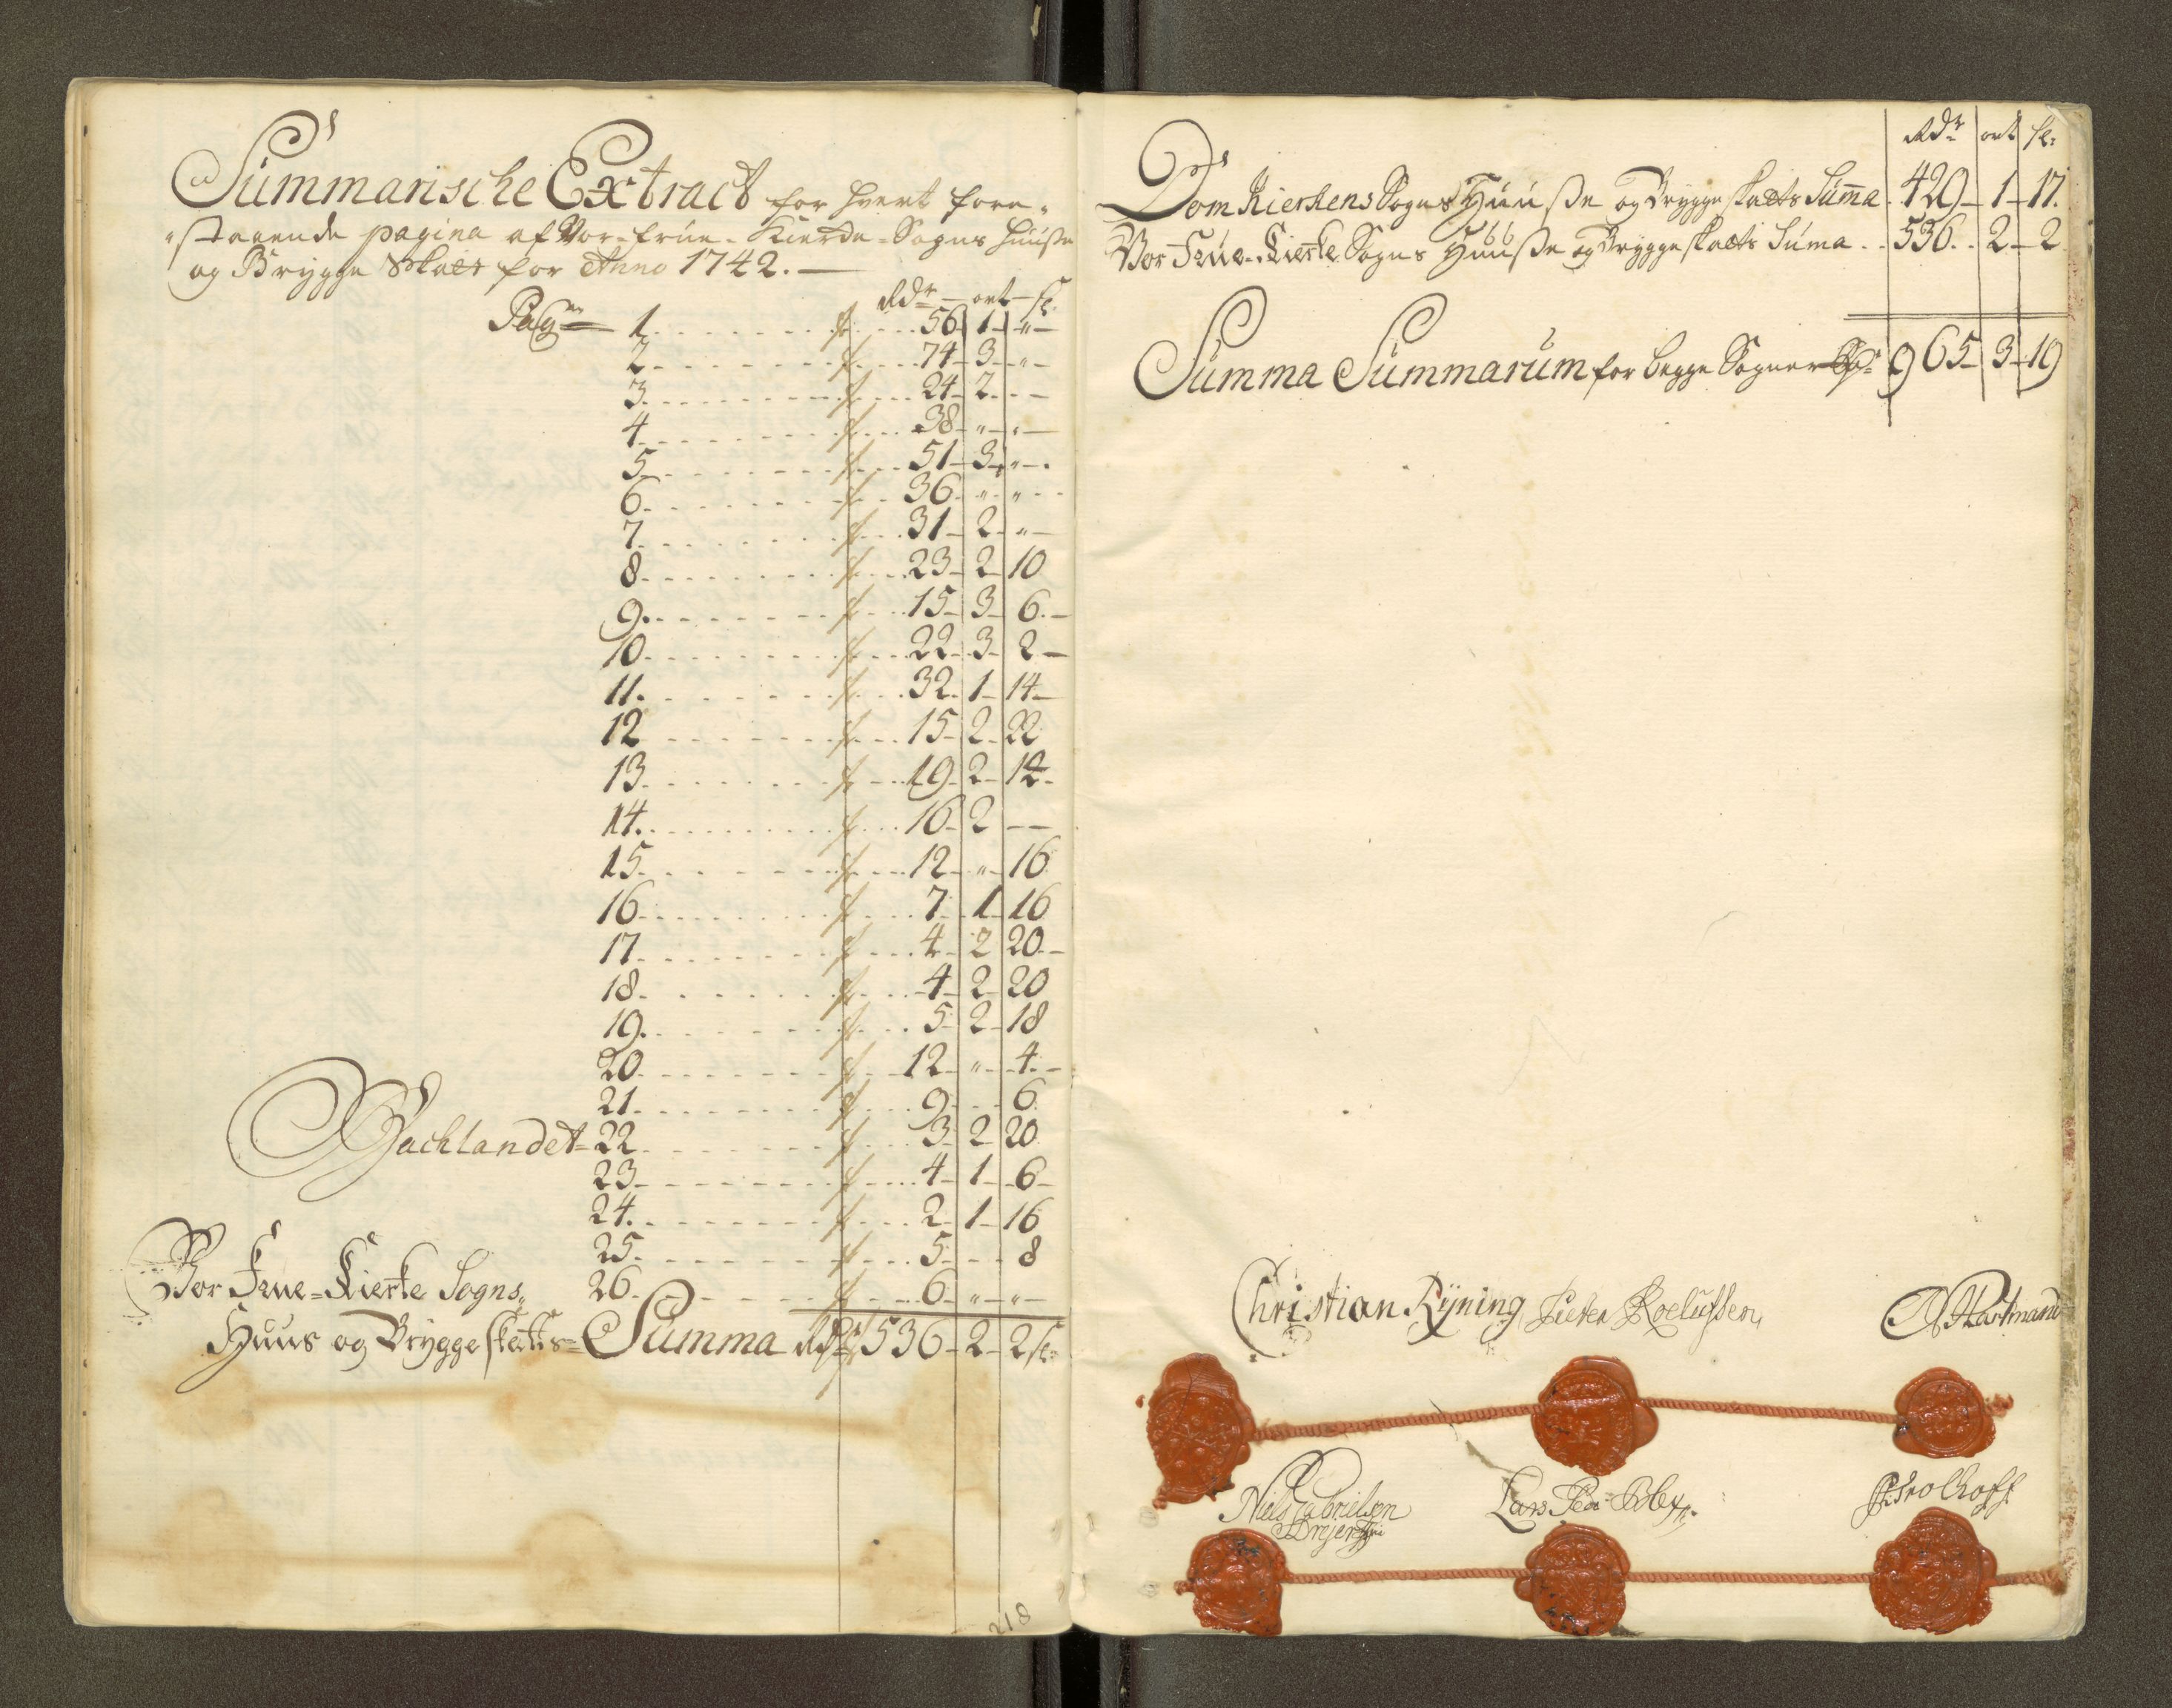 Summarische Extract for hvert fore-
staaende pagina af Vor-frue-Kierke-Sogns Huuse
og Brygge Skatt for Anno 1742.
Rdr ort sk:
Pagna 1. 56 1 "
2. 74 3 "
3. 24 2 -
4. 38 " "
5. 51 3 "
6. 36 " "
7. 31 2 "
8. 23 2 10
9. 15 3 6
10. 22 3 2
11. 32 1 14
12 15 2 22
13. 19 2 12
14. 16 2 -
15. 12 " 16
16. 7 1 16
17. 4 2 20
18. 4 2 20
19. 5 2 18
20. 12 " 4
21. 9 - 6
Bachlandet 22 3 2 20
23 4 1 6
24. 2 1 16
25. 5 - 8
Vor Frue-Kierke Sogns 26. 6 " "
Huus og Brygge skatts Summa Rdr 536 2 2 sk:
218
Rdr ort sk:
Dom Kierkens Sogns Huuse og Brygge skatts Summa 429 1 17.
Vor Frue Kierke Sogns Huuse og Brygge skatts Suma 536 2 2
Summa Summarum for begge Sogner 965 3 19
Christian Rÿning Peter Roelufsen A Hartmand
Niels Gabrielsen Lars
Drejer